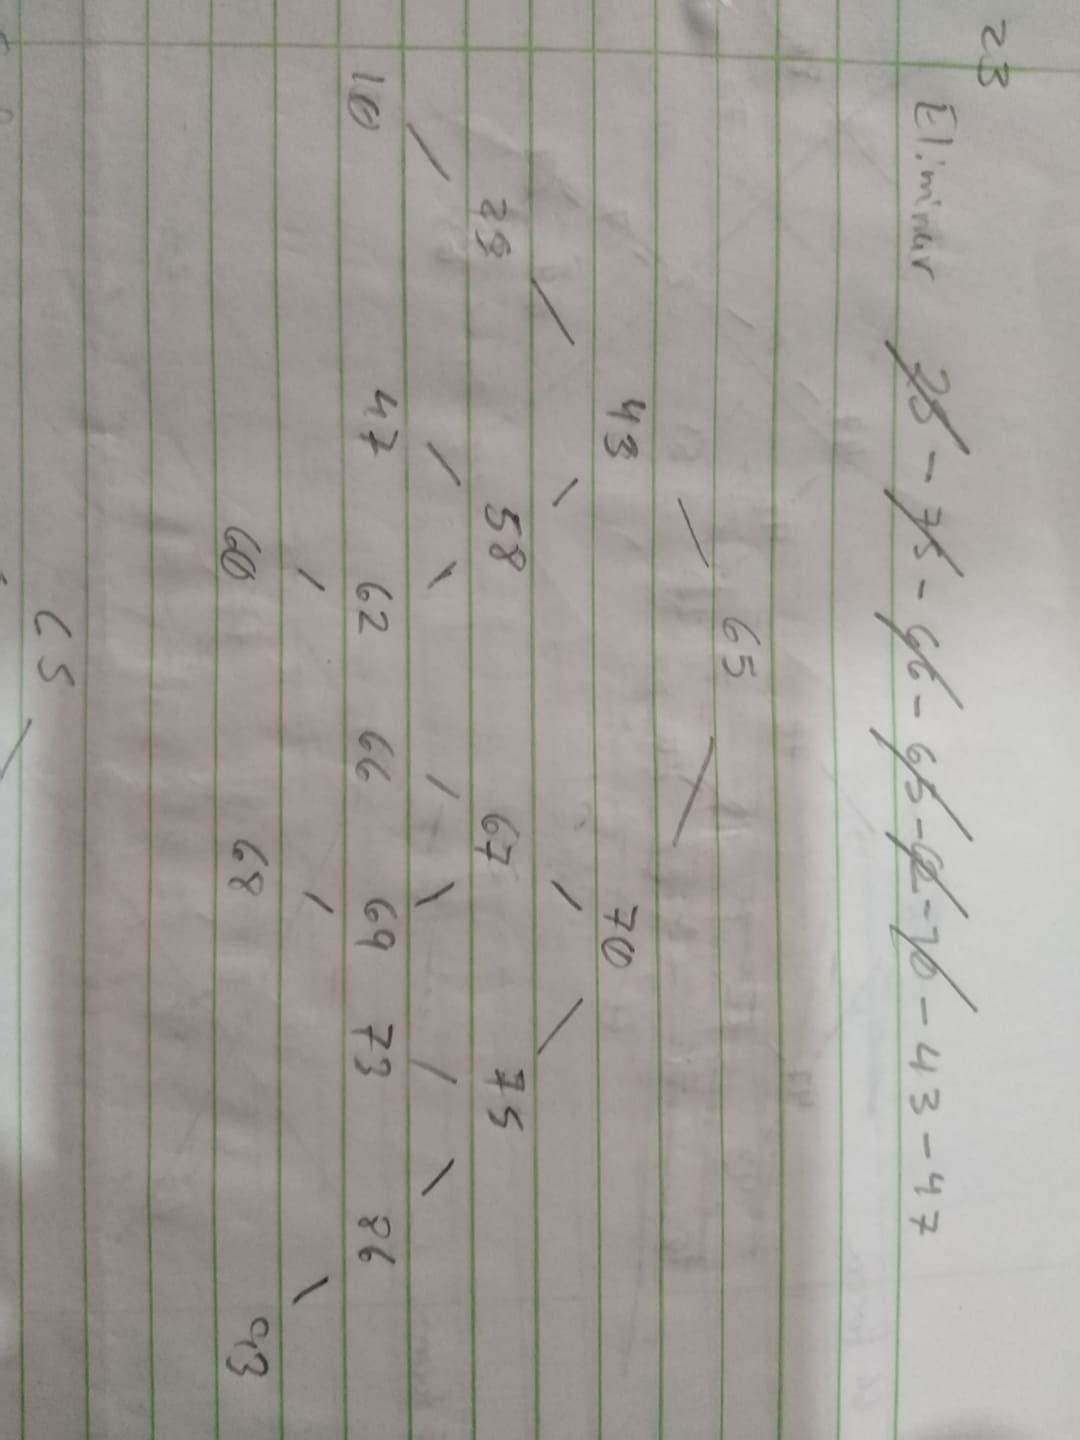 23
Eliminar 25 - 75 - 66 - 65 - 62 - 70 - 43 - 47
65
43 70
29 58 67 75
10 47 62 66 69 73 86
60 68 93
65